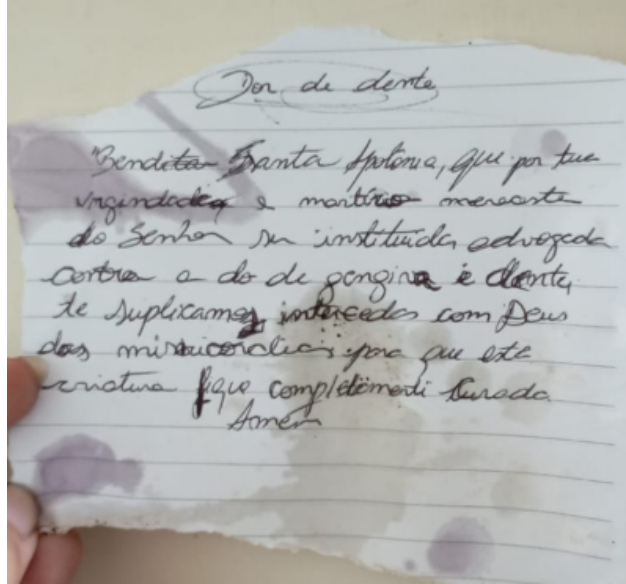 Dor de dente
"Bendita Santa Apolonia, que por tua
virgindade e martírio mereceste
do Senhor ser instituída advogada
contra a do de gengina e dente,
te suplicamos intercedas com Deus
das misericordias para que esta
criatura fique completamenti curada
Amém